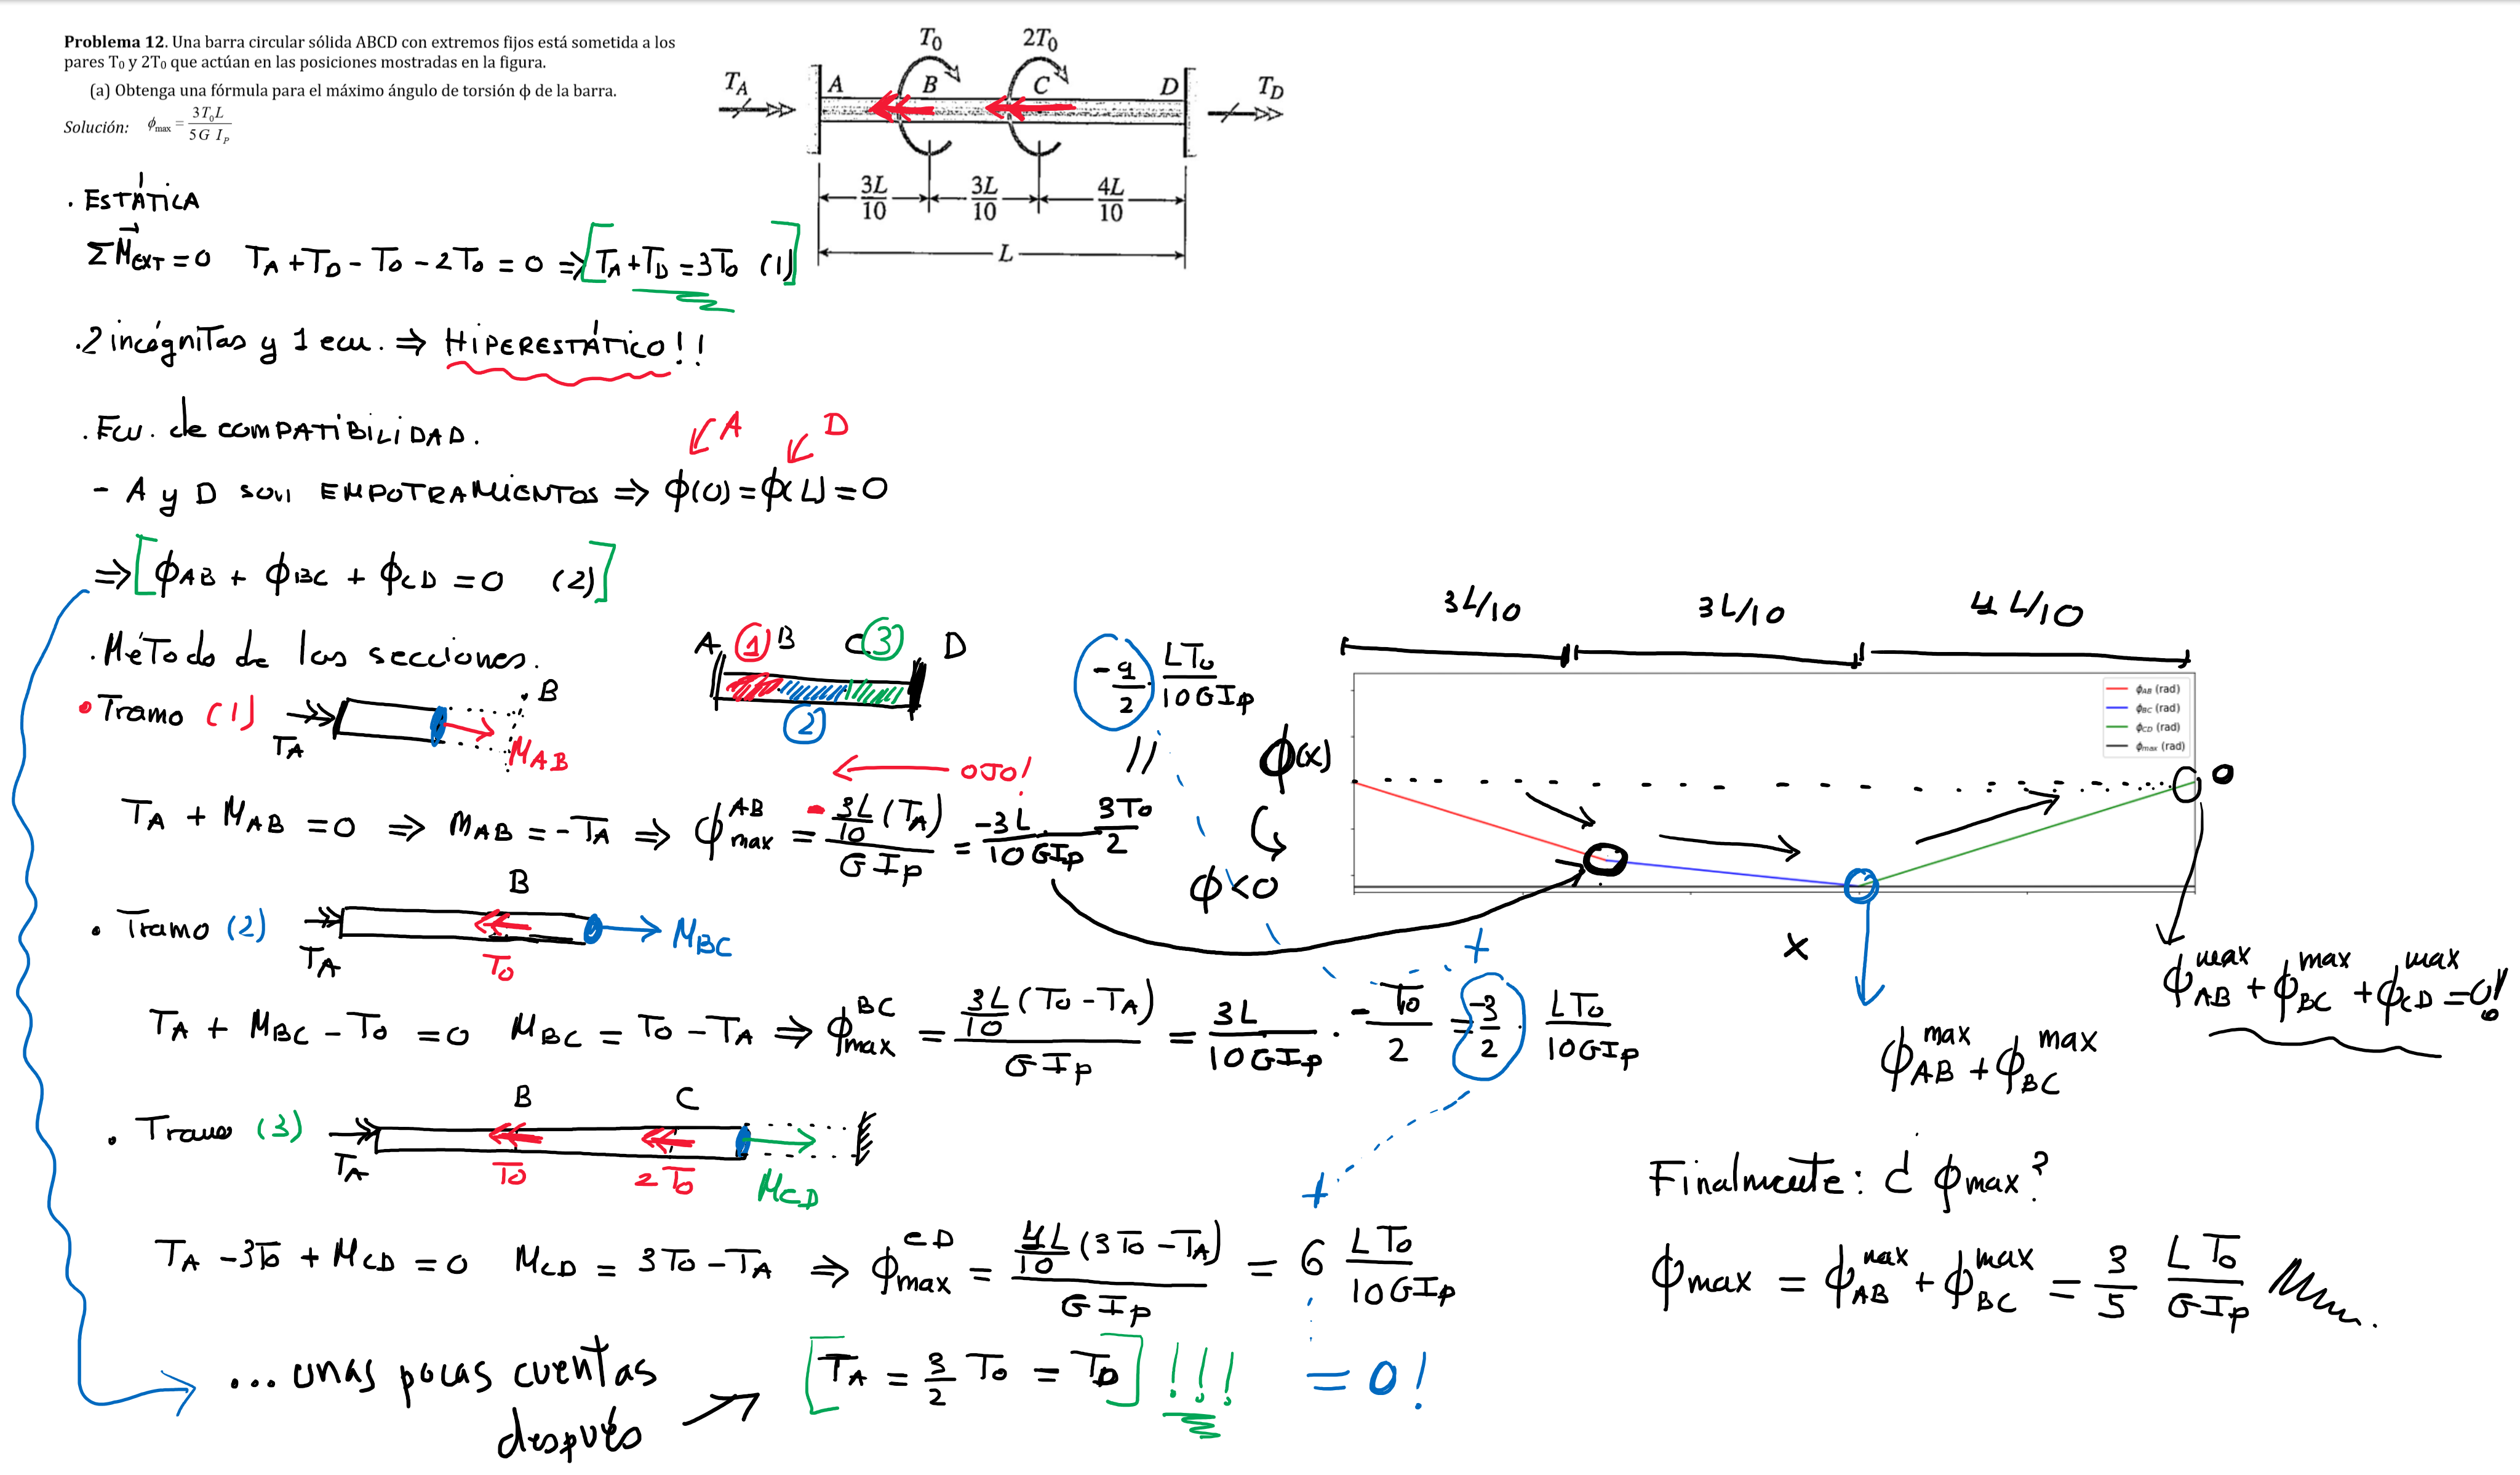 Problema 12. Una barra circular sólida ABCD con extremos fijos está sometida a los
pares T₀ y 2T₀ que actúan en las posiciones mostradas en la figura.
(a) Obtenga una fórmula para el máximo ángulo de torsión ϕ de la barra.
Solución: ϕmax = 3T₀L / 5G I_P
T₀ 2T₀
T_A A B C D T_D
3L/10 3L/10 4L/10
L
. ESTÁTICA
ΣM⃗EXT = 0 T_A + T_D - T₀ - 2T₀ = 0 ⇒ [T_A + T_D = 3T₀ (1)]
. 2 incógnitas y 1 ecu. ⇒ HIPERESTÁTICO!!
. Ecu. de COMPATIBILIDAD.
A D
- A y D son EMPOTRAMIENTOS ⇒ ϕ(0) = ϕ(L) = 0
⇒ [ϕAB + ϕBC + ϕCD = 0 (2)]
. Método de las secciones.
A (1) B C (3) D
(2)
• Tramo (1) T_A M_AB . B
T_A + M_AB = 0 ⇒ M_AB = -T_A ⇒ ϕ^AB_max = - 3L/10 (T_A) / G I_P = -3L / 10 G I_P 3T₀/2
← OJO!
-9/2 · LT₀ / 10 G I_P
//
• Tramo (2) T_A B T₀ M_BC
T_A + M_BC - T₀ = 0 M_BC = T₀ - T_A ⇒ ϕ^BC_max = 3L/10 (T₀ - T_A) / G I_P = 3L / 10 G I_P · -T₀/2 = -3/2 · LT₀ / 10 G I_P
+
. Tramo (3) T_A B T₀ C 2T₀ M_CD
+
T_A - 3T₀ + M_CD = 0 M_CD = 3T₀ - T_A ⇒ ϕ^CD_max = 4L/10 (3T₀ - T_A) / G I_P = 6 LT₀ / 10 G I_P
... unas pocas cuentas después → [T_A = 3/2 T₀ = T_D] !!! = 0!
3L/10 3L/10 4L/10
ϕAB (rad)
ϕBC (rad)
ϕCD (rad)
ϕmax (rad)
ϕ(x)
0
ϕ<0
x
ϕ^max_AB + ϕ^max_BC + ϕ^max_CD = 0!
ϕ^max_AB + ϕ^max_BC
Finalmente: ¿ ϕmax?
ϕmax = ϕ^max_AB + ϕ^max_BC = 3/5 LT₀ / G I_P